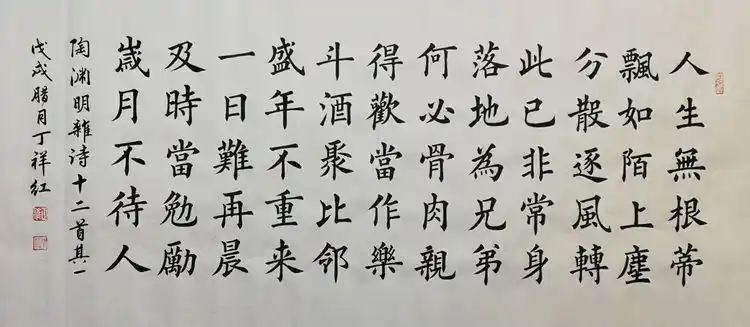 人生無根蒂
飄如陌上塵
分散逐風轉
此已非常身
落地為兄弟
何必骨肉親
得歡當作樂
斗酒聚比鄰
盛年不重来
一日難再晨
及時當勉勵
歲月不待人
陶渊明雜诗十二首其一
戊戌腊月丁祥红